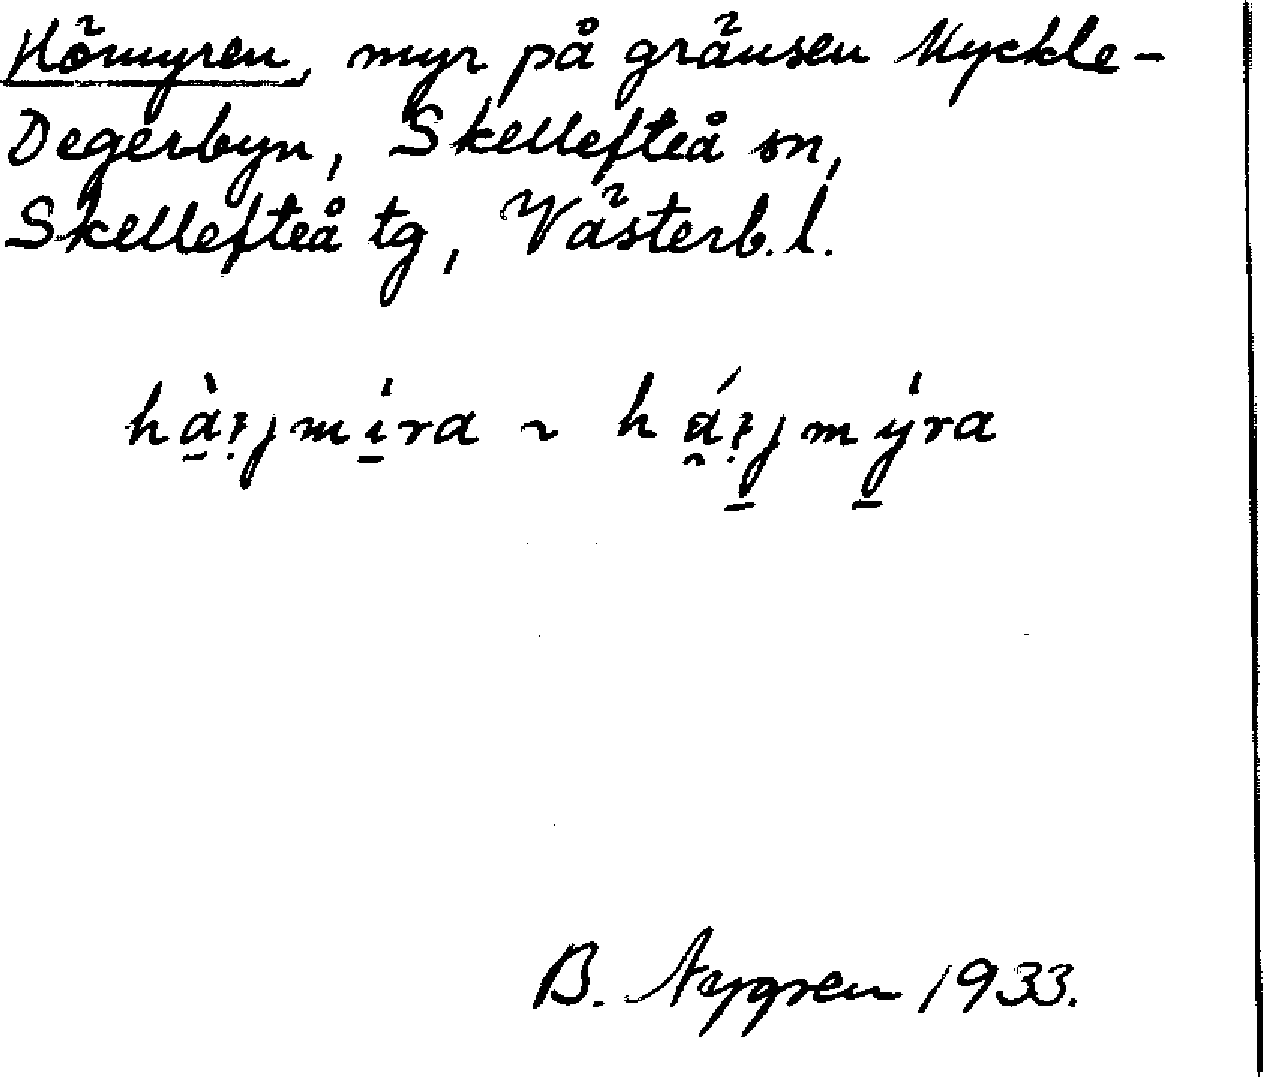 Hömyren, myr på gränsen Myckle-
Degerbyn, Skellefteå sn,
Skellefteå tg, Västerb. l.
B. Nygren 1933.